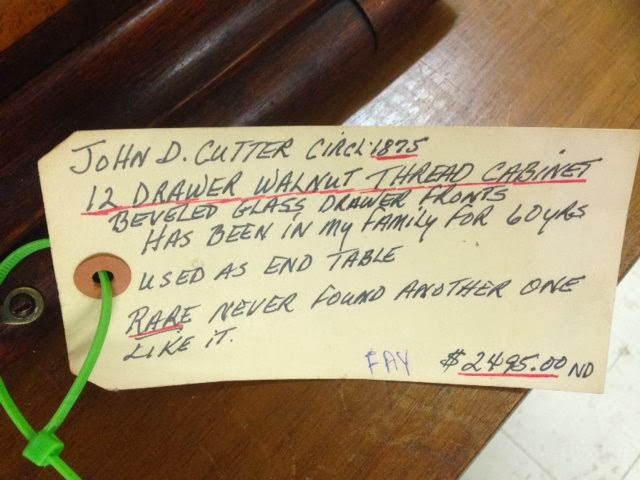 JOHN D. CUTTER CIRCL 1875
12 DRAWER WALNUT THREAD CABINET
BEVELED GLASS DRAWER FRONTS
HAS BEEN IN MY FAMILY FOR 60 YRS
USED AS END TABLE
RARE NEVER FOUND ANOTHER ONE
LIKE IT.
FAY $2495.00 ND